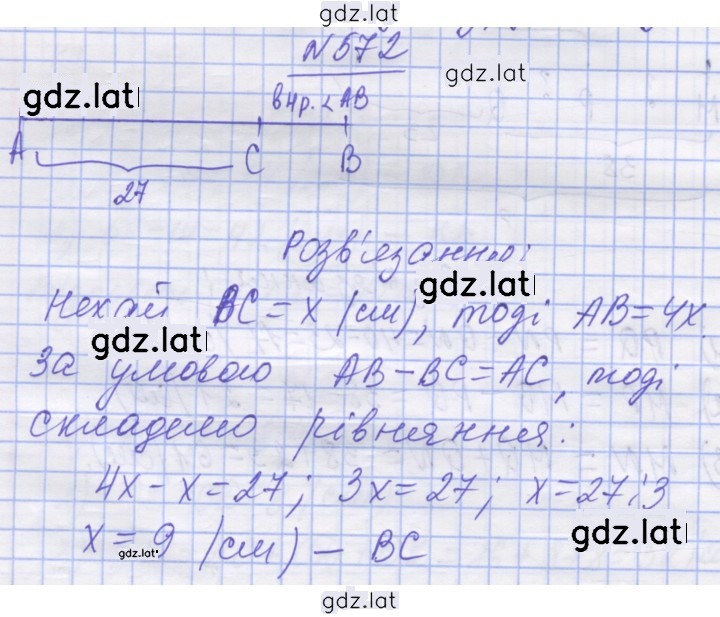 gdz.lat
N572
gdz.lat
gdz.lat
в 4р. < AB
A C B
27
Розв'язання:
gdz.lat
Нехай BC = x (см), тоді AB = 4x
gdz.lat
За умовою AB - BC = AC, тоді
складемо рівняння:
4x - x = 27; 3x = 27; x = 27:3
x = 9 (см) - BC
gdz.lat
gdz.lat
gdz.lat